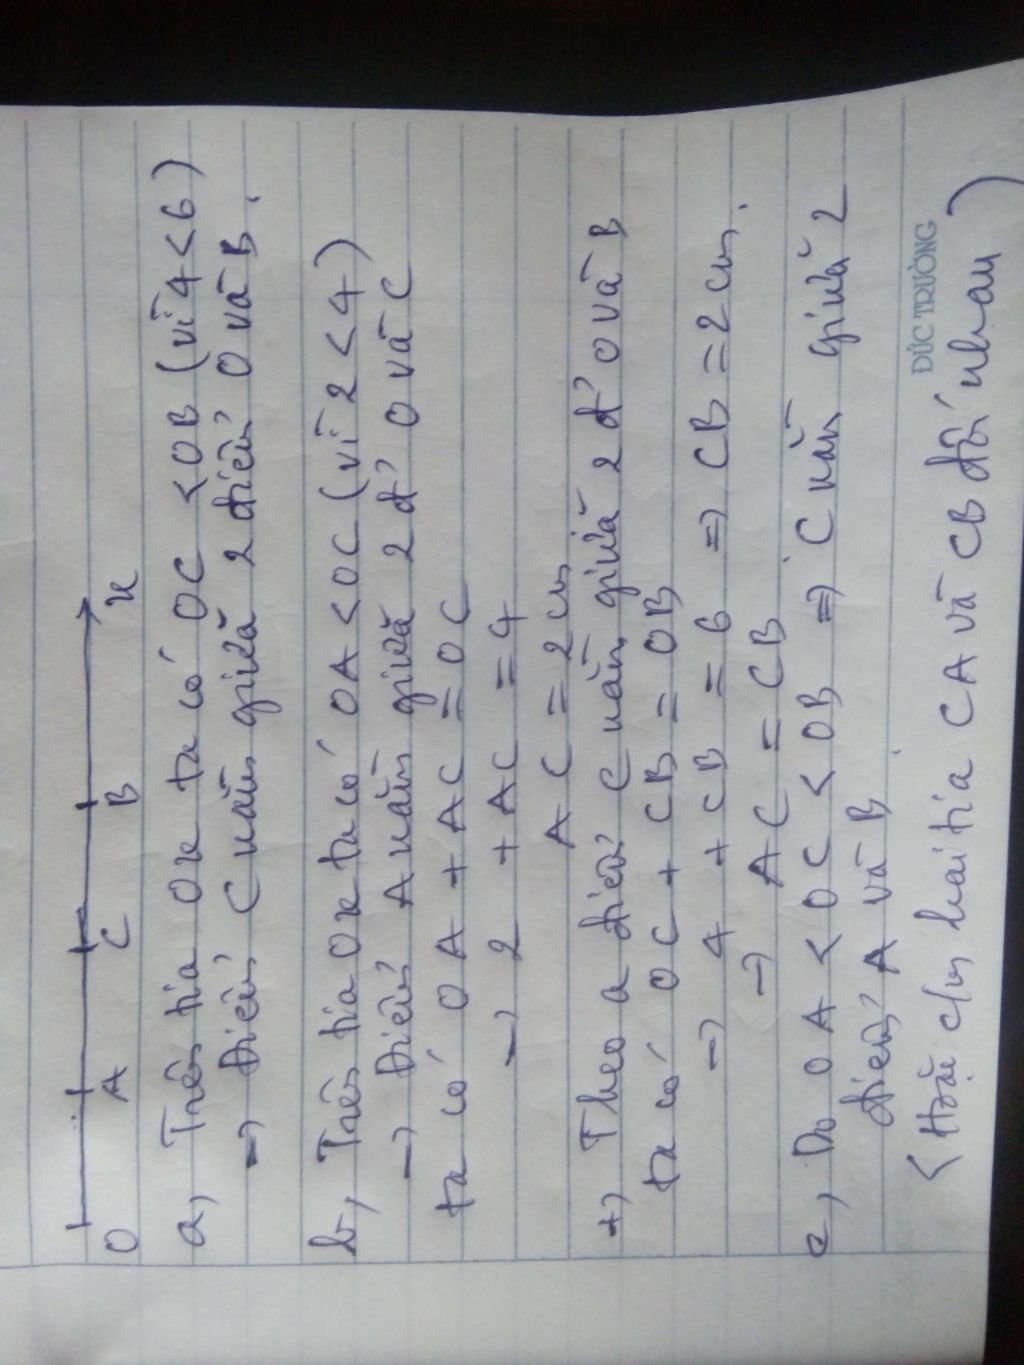 O A C B x
a, Trên tia Ox ta có OC < OB (vì 4 < 6)
=> Điểm C nằm giữa 2 điểm O và B.
b, Trên tia Ox ta có OA < OC (vì 2 < 4)
=> Điểm A nằm giữa 2 đ' O và C
ta có OA + AC = OC
=> 2 + AC = 4
AC = 2 cm
+, Theo a điểm C nằm giữa 2 đ' O và B
ta có OC + CB = OB
=> 4 + CB = 6 => CB = 2 cm.
=> AC = CB
c, Do OA < OC < OB => C nằm giữa 2
điểm A và B
ĐỨC TRƯỜNG
(Hoặc c/m hai tia CA và CB đối nhau)